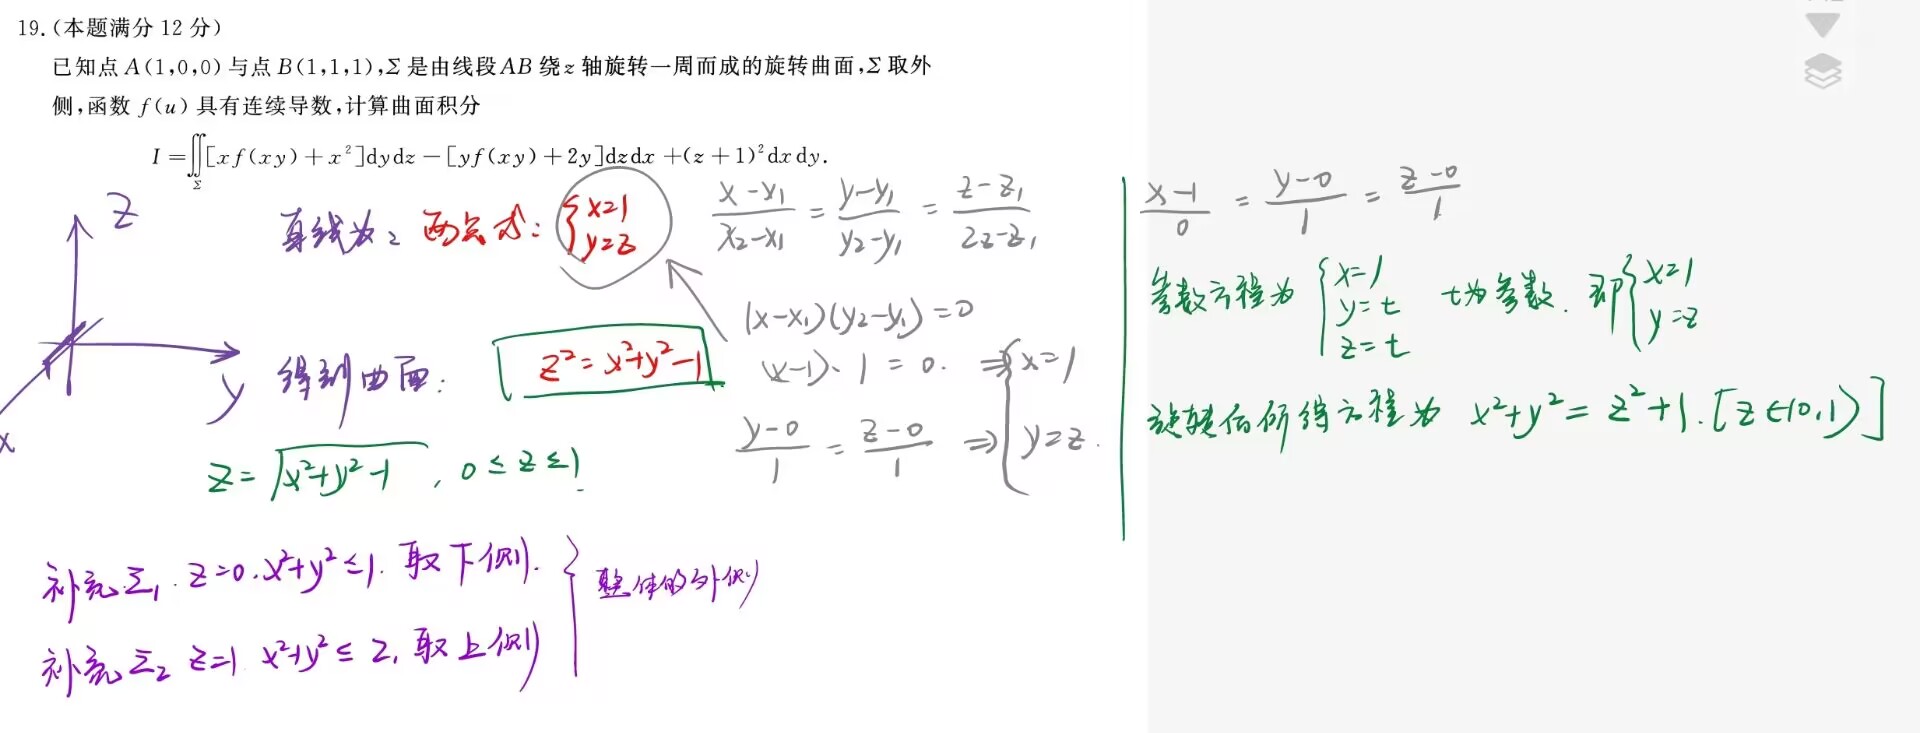 19.(本题满分 12 分)
已知点 A(1,0,0) 与点 B(1,1,1),Σ 是由线段 AB 绕 z 轴旋转一周而成的旋转曲面,Σ 取外
侧,函数 f(u) 具有连续导数,计算曲面积分
I=∬_Σ[xf(xy)+x²]dydz-[yf(xy)+2y]dzdx+(z+1)²dxdy.
z
y
x
直线为: 两点式: {x=1 y=z
(x-x₁)/(x₂-x₁) = (y-y₁)/(y₂-y₁) = (z-z₁)/(z₂-z₁)
(x-x₁)(y₂-y₁)=0
(x-1)·1=0. ⇒ {x=1
(y-0)/1 = (z-0)/1 ⇒ y=z.
得到曲面: z²=x²+y²-1
z=√(x²+y²-1), 0≤z≤1
补充Σ₁. z=0. x²+y²≤1. 取下侧.
补充Σ₂ z=1. x²+y²≤2, 取上侧
} 整体的外侧
(x-1)/0 = (y-0)/1 = (z-0)/1
参数方程为 {x=1 y=t z=t t为参数. 即 {x=1 y=z
旋转后所得方程为 x²+y²=z²+1. [z∈(0,1)]